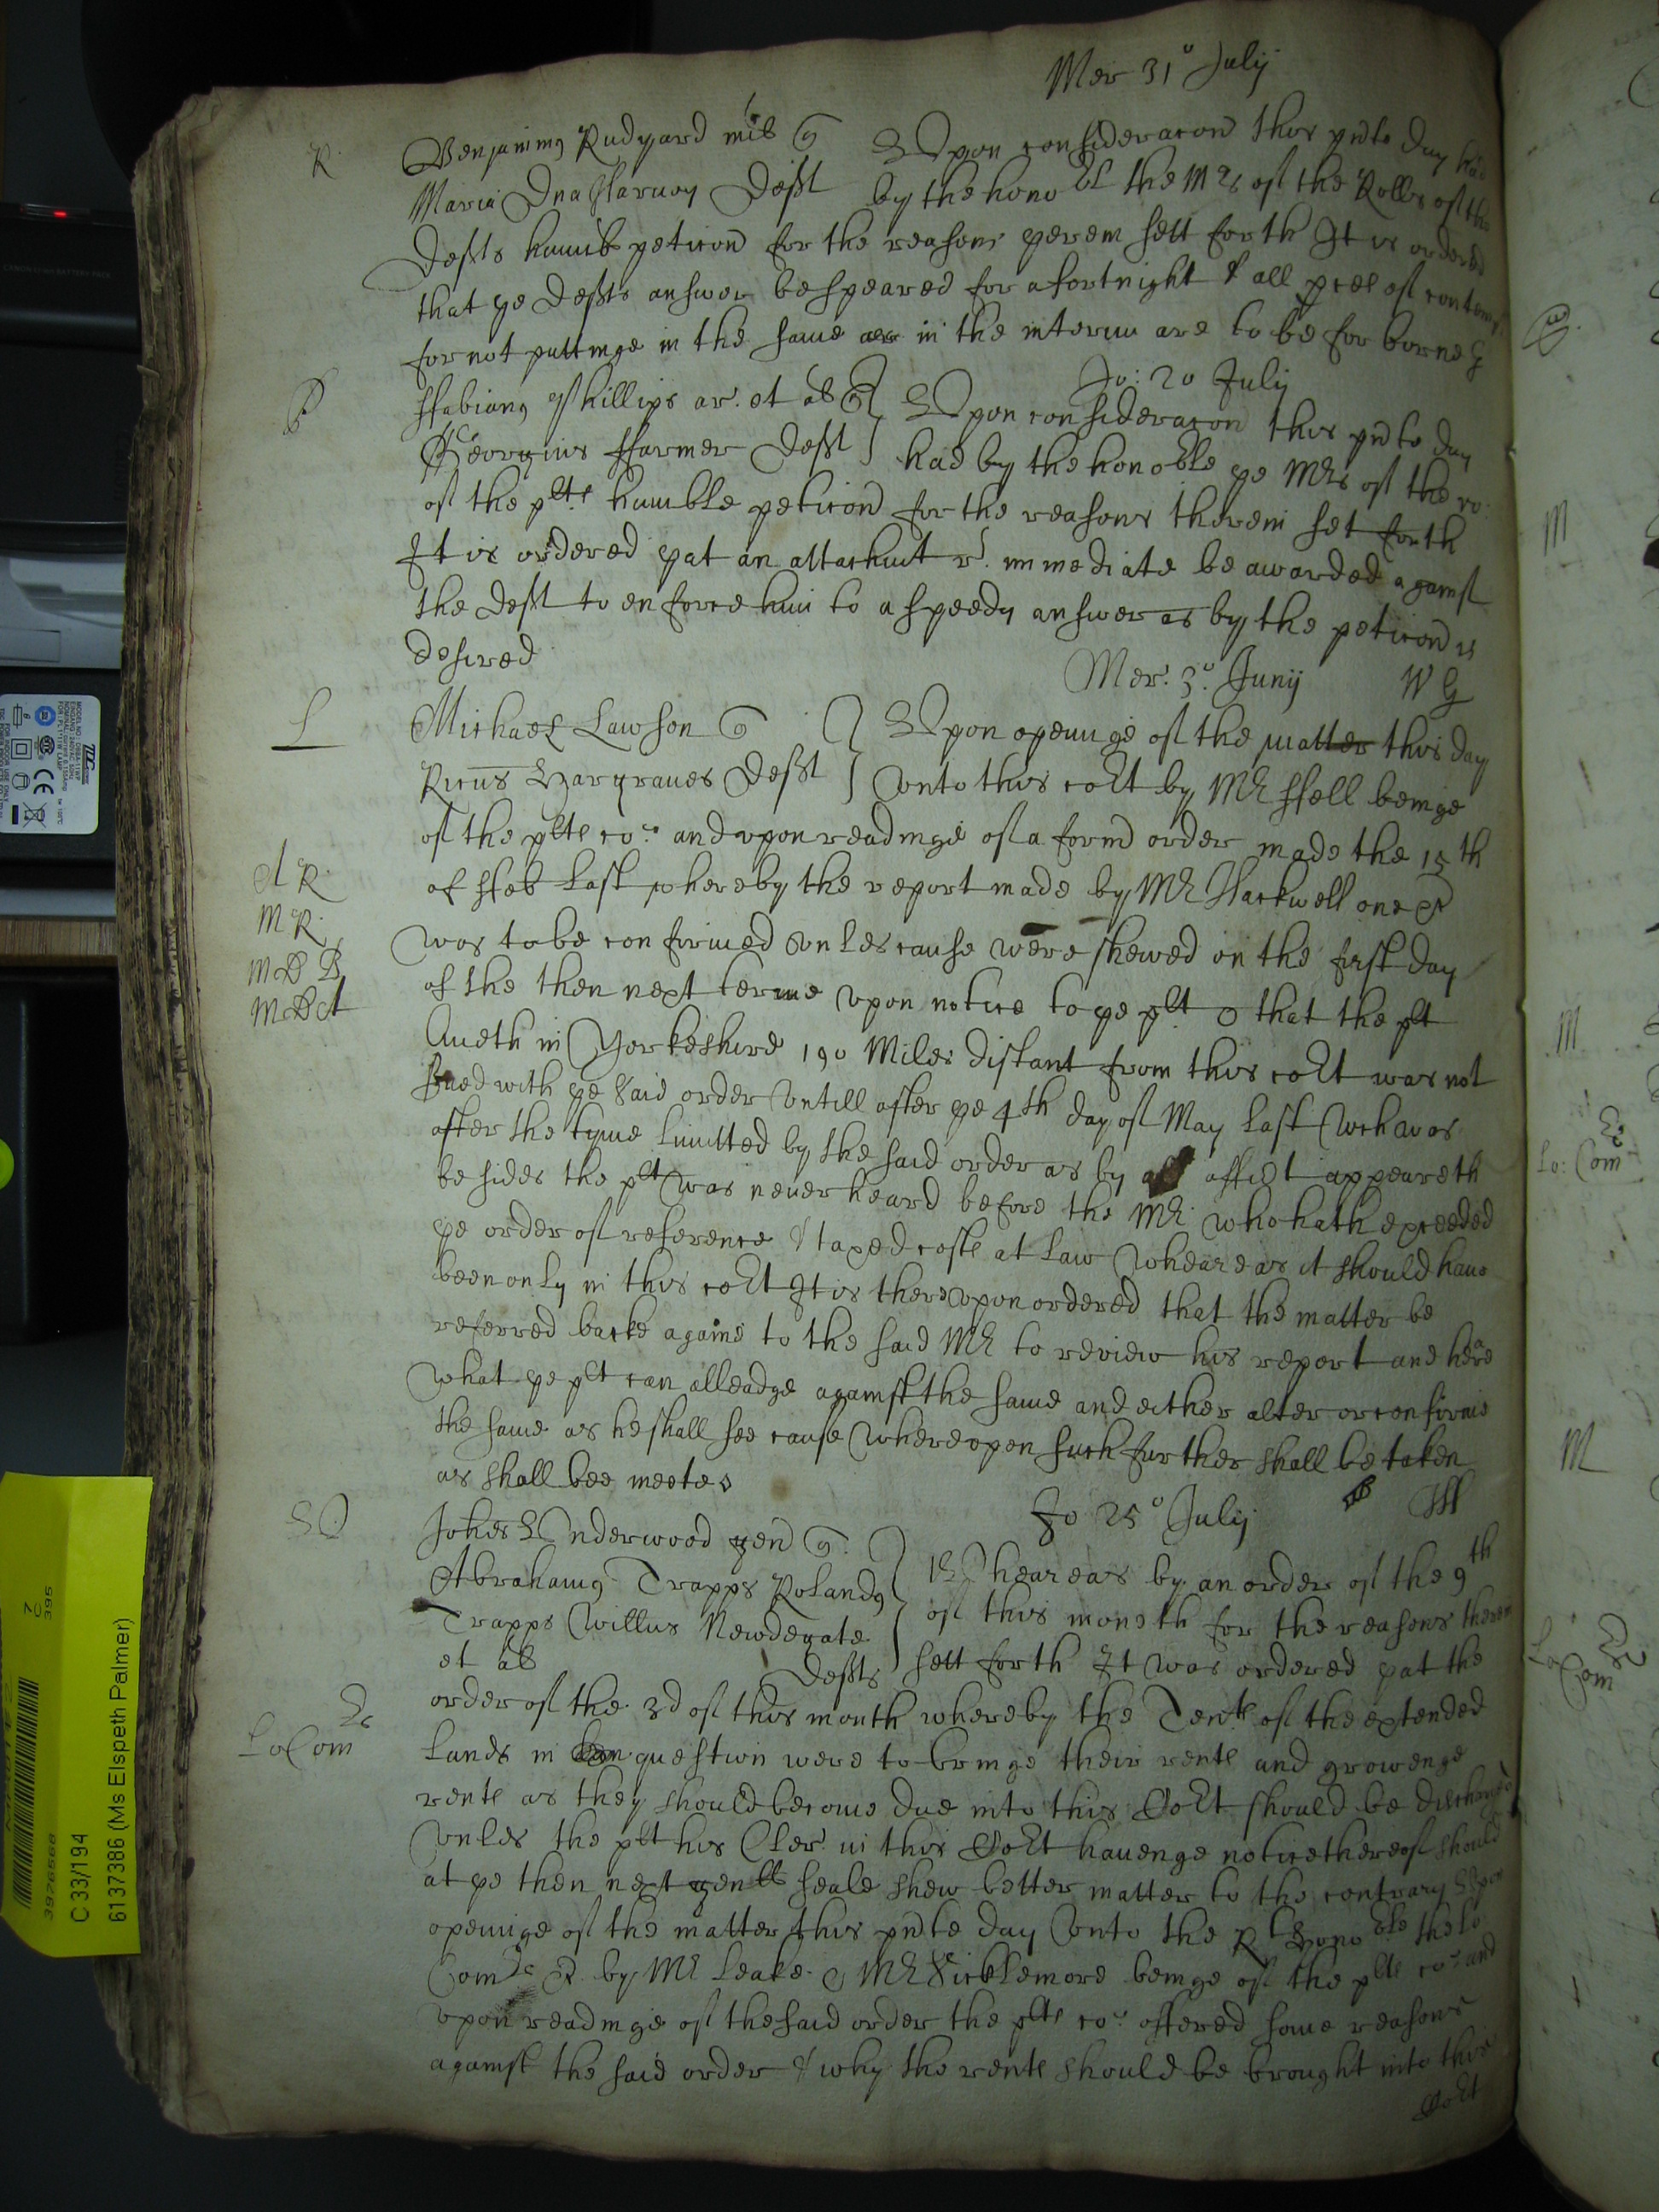 Mer 31º Julij
R
Benjaminus Rudyard mil q
Maria Dna Haruey Defts
Upon consideracon this pnte day had
by the honoble the Mr of the Rolles of the
Defts humble peticon for the reasons yerein sett forth It is ordered
that ye Defts answer be speared for a fortnight & all pces of contempt
for not puttinge in the same in the interim are to be forborne
Jo: 20 Julij
P
ffabianus Phillips ar. et al q
Georgius ffarmer Deft
Upon consideracon this pnte day
had by the honoble ye Mr of the ro:
of the plts humble peticon for the reasons therein set forth
It is ordered yat an attachmt r. immediate be awarded against
the Deft to enforce him to a speedy answer as by the peticon is
desired
Mer: 3º Junij W G
L
Michael Lawson q
Ricus Hargraues Deft
Upon openinge of the matter this day
vnto this coRt by Mr ffell beinge
of the plts co: and vpon readinge of a form order made the 15th
of ffeb last whereby the report made by Mr Hackwell one &c
A R
M R
M D B
M D A
was to be confirmed vnles cause were shewed on the first day
of the then next terme vpon notice to ye plt that the plt
liueth in Yorkeshire 190 Miles distant from this coRt was not
serued with ye said order vntill after ye 4th day of May last wch was
after the tyme limitted by the said order as by affidt appeareth
besides the plt was neuer heard before the Mr who hath exceeded
ye order of reference & taxed costs at law wheareas it should haue
been only in this coRt It is therevpon ordered that the matter be
referred backe againe to the said Mr to review his report and heare
what ye plt can alleadge against the same and either alter or confirme
the same as he shall see cause wherevpon such further shall be taken
as shall bee meete
Jo 25º Julij
Johes Underwood gen q
Abrahamus Trapps Rolandus
Trapps Willus Newdegate
et al Defts
Wheareas by an order of the 9th
of this moneth for the reasons therein
sett forth It was ordered yat the
order of the 3d of this month whereby the Tents of the extended
Lo Com
lands in question were to bringe their rents and growenge
rents as they should become due into this CoRt should be discharged
vnles the plt his Cler in this CoRt hauenge notice thereof should
at ye then next genll seale shew better matter to the contrary Upon
openinge of the matter this pnte day vnto the Rt Honoble the lo
Comrs &c by Mr Leake & Mr Sicklemore beinge of the plts co: and
vpon readinge of the said order the plts co: offered some reasons
against the said order & why the rents should be brought into this
CoRt
C 33/194
6137386 (Ms Elspeth Palmer)
3976568
7
C
395
Lo: Com
Lo Com
M
M
M